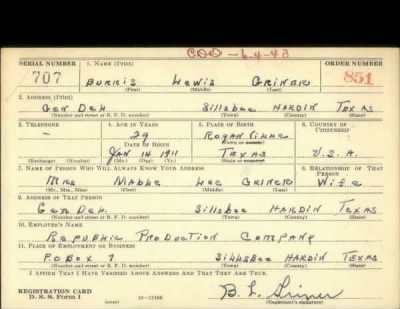 COO -6-4-43
SERIAL NUMBER 1. NAME (Print) ORDER NUMBER
707 BURRIS LEWIS GRINER 851
(First) (Middle) (Last)
2. ADDRESS (Print)
GEN DEL SILLSBEE HARDIN TEXAS
(Number and street or R. F. D. number) (Town) (County) (State)
3. TELEPHONE 4. AGE IN YEARS 5. PLACE OF BIRTH 6. COUNTRY OF CITIZENSHIP
- 29 ROGANVILLE
DATE OF BIRTH (Town or county)
JAN 14 1911 TEXAS U.S.A.
(Exchange) (Number) (Mo.) (Day) (Yr.) (State or country)
7. NAME OF PERSON WHO WILL ALWAYS KNOW YOUR ADDRESS 8. RELATIONSHIP OF THAT PERSON
MRS MABLE LEE GRINER WIFE
(Mr., Mrs., Miss) (First) (Middle) (Last)
9. ADDRESS OF THAT PERSON
GEN DEL SILLSBEE HARDIN TEXAS
(Number and street or R. F. D. number) (Town) (County) (State)
10. EMPLOYER'S NAME
REPUBLIC PRODUCTION COMPANY
11. PLACE OF EMPLOYMENT OR BUSINESS
P.O BOX 7 SILLSBEE HARDIN TEXAS
(Number and street or R. F. D. number) (Town) (County) (State)
I AFFIRM THAT I HAVE VERIFIED ABOVE ANSWERS AND THAT THEY ARE TRUE.
REGISTRATION CARD
D. S. S. Form 1 B. L. Griner
(Registrant's signature)